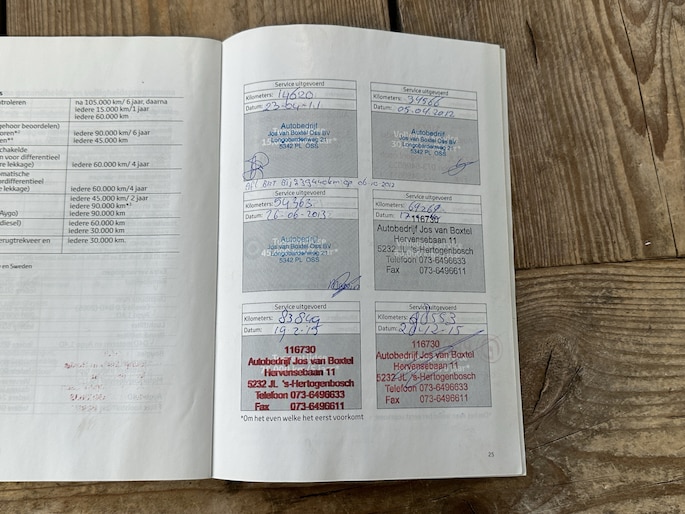 s
ntroleren
na 105.000 km/ 6 jaar, daarna
iedere 15.000 km/1 jaar
iedere 60.000 km
gehoor beoordelen)
oren*²
iedere 90.000 km/ 6 jaar
en*²
iedere 45.000 km
schakelde
n voor differentieel
re lekkage)
iedere 60.000 km/ 4 jaar
omatische
ordifferentieel
e lekkage)
iedere 60.000 km/4 jaar
iedere 45.000 km/ 2 jaar
iedere 90.000 km
Aygo)
iedere 90.000 km
diesel)
iedere 60.000 km
iedere 30.000 km
erugtrekveer en
iedere 30.000 km.
and Sweden
Service uitgevoerd
Kilometers: 14620
Datum: 23-04-11
Autobedrijf
Jos van Boxtel Oss BV
Longobardenweg 21
5342 PL OSS
Service uitgevoerd
Kilometers: 34566
Datum: 05.04.2012
Autobedrijf
Jos van Boxtel Oss BV
Longobardenweg 21
5342 PL OSS
Service uitgevoerd
Kilometers: 54363
Datum: 26-06-2013
Autobedrijf
Jos van Boxtel Oss BV
Longobardenweg 21
5342 PL OSS
Service uitgevoerd
Kilometers: 69268
Datum:
116730
Autobedrijf Jos van Boxtel
Hervensebaan 11
5232 JL 's-Hertogenbosch
Telefoon 073-6496633
Fax 073-6496611
Service uitgevoerd
Kilometers: 83849
Datum: 19-2-15
116730
Autobedrijf Jos van Boxtel
Hervensebaan 11
5232 JL 's-Hertogenbosch
Telefoon 073-6496633
Fax 073-6496611
Service uitgevoerd
Kilometers: 98553
Datum: 28-12-15
116730
Autobedrijf Jos van Boxtel
Hervensebaan 11
5232 JL 's-Hertogenbosch
Telefoon 073-6496633
Fax 073-6496611
*Om het even welke het eerst voorkomt
25